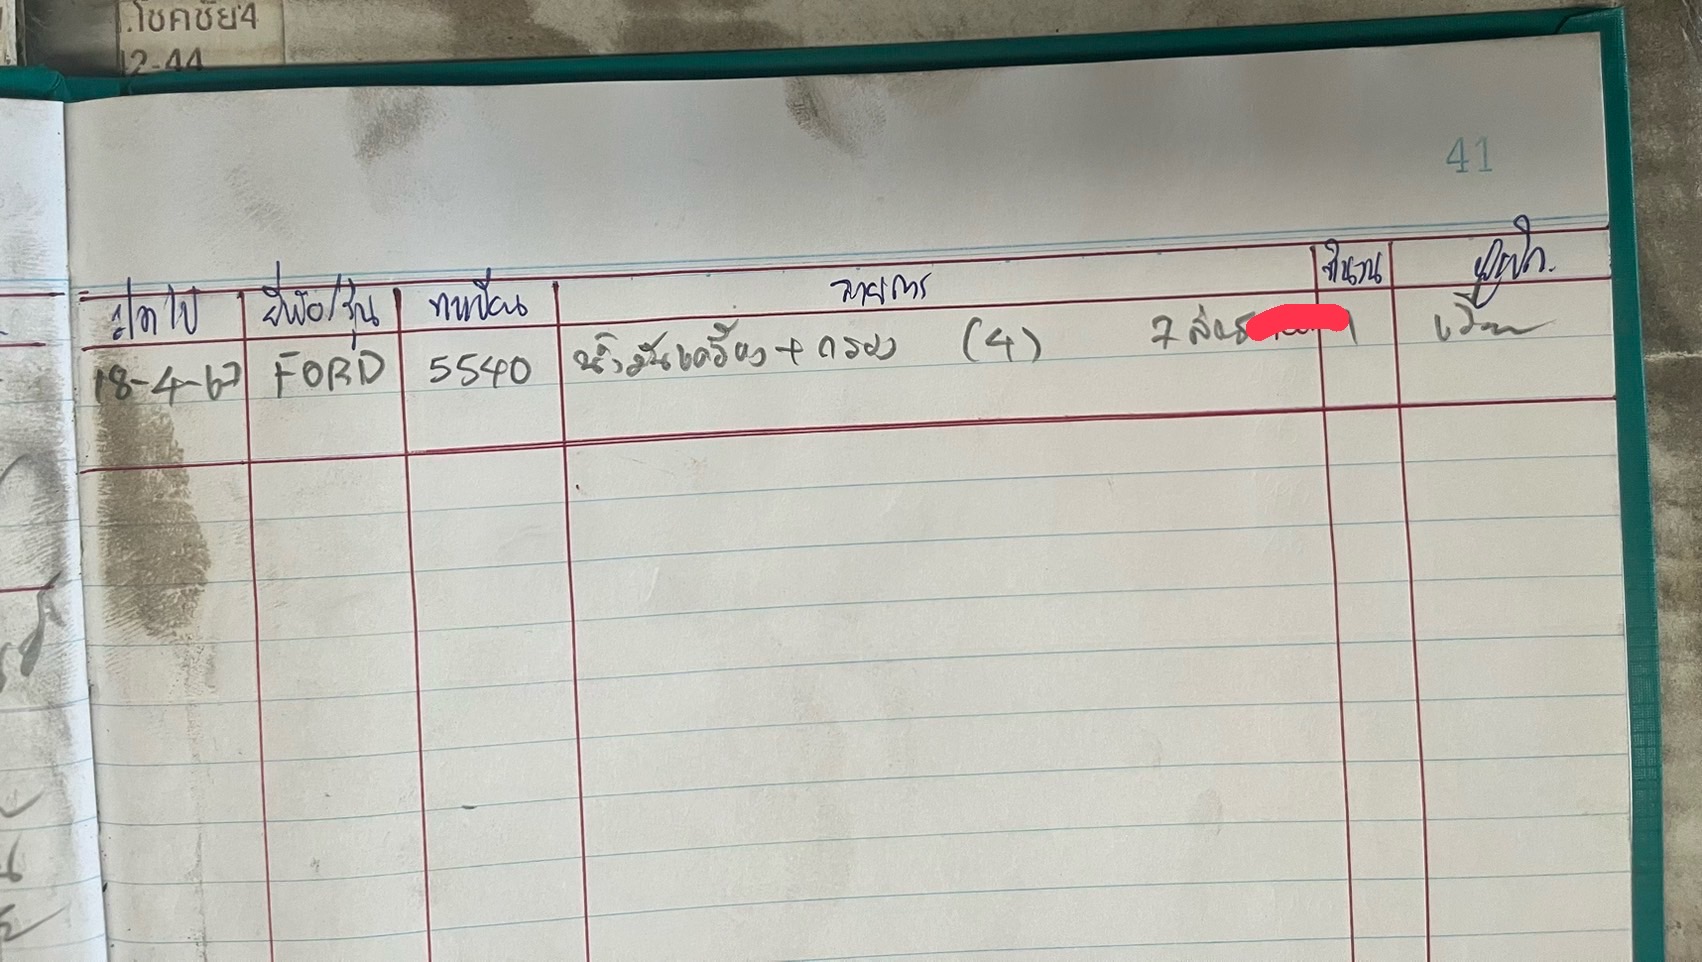 .โชคชัย4
12-44
41
ว/ด/ป ยี่ห้อ/รุ่น ทะเบียน รายการ จำนวน ผู้เบิก
18-4-67 FORD 5540 น้ำมันเครื่อง + กรอง (4) 7 ลิตร 1